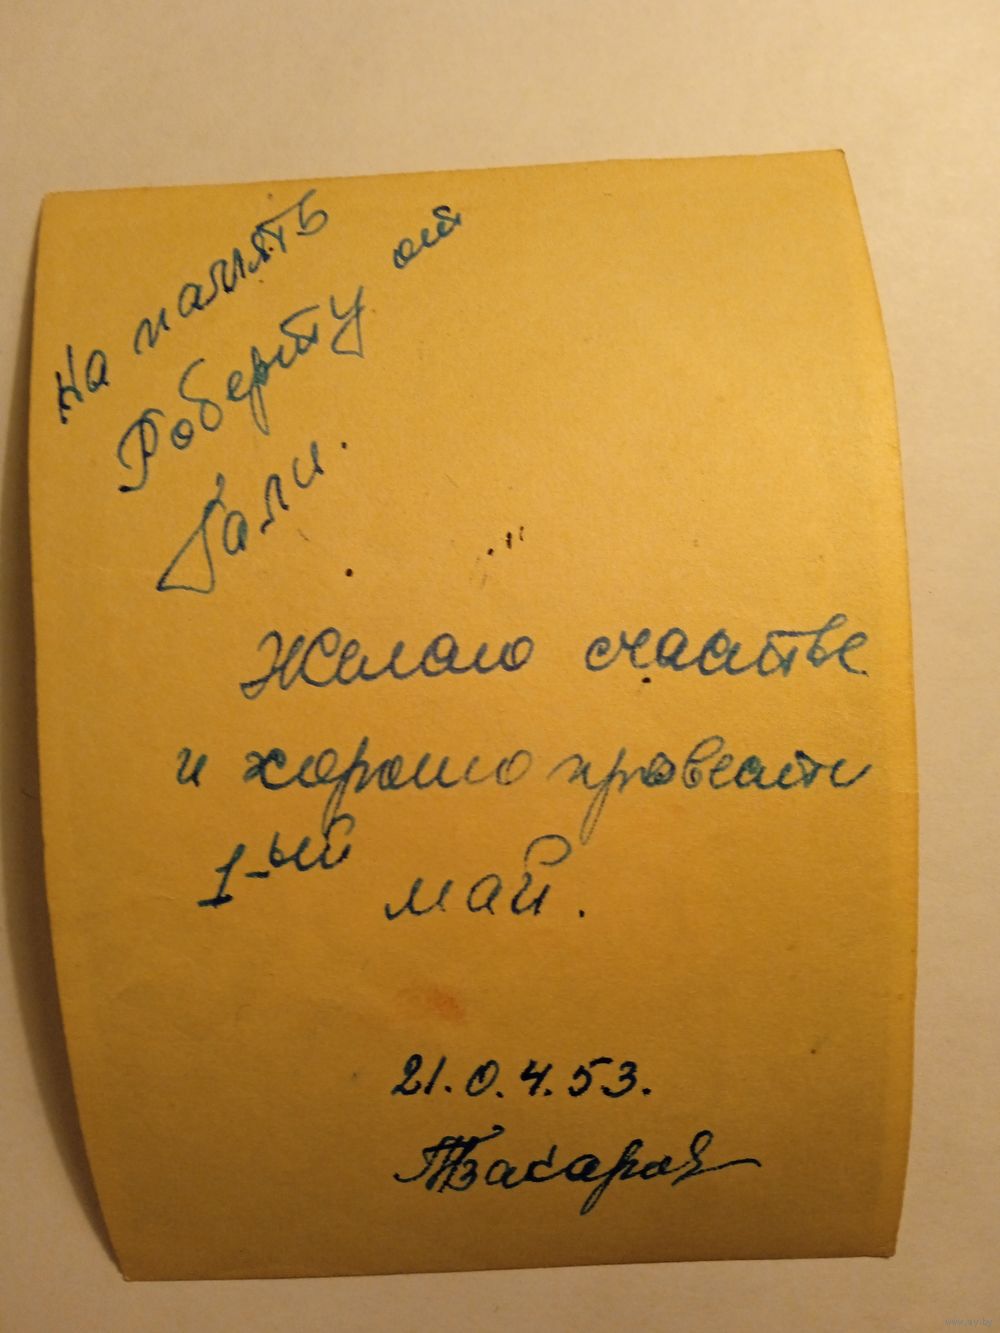 На память
Роберту от
Гали.
Желаю счастье
и хорошо провести
1-ый май.
21.0.4.53.
www.ay.by